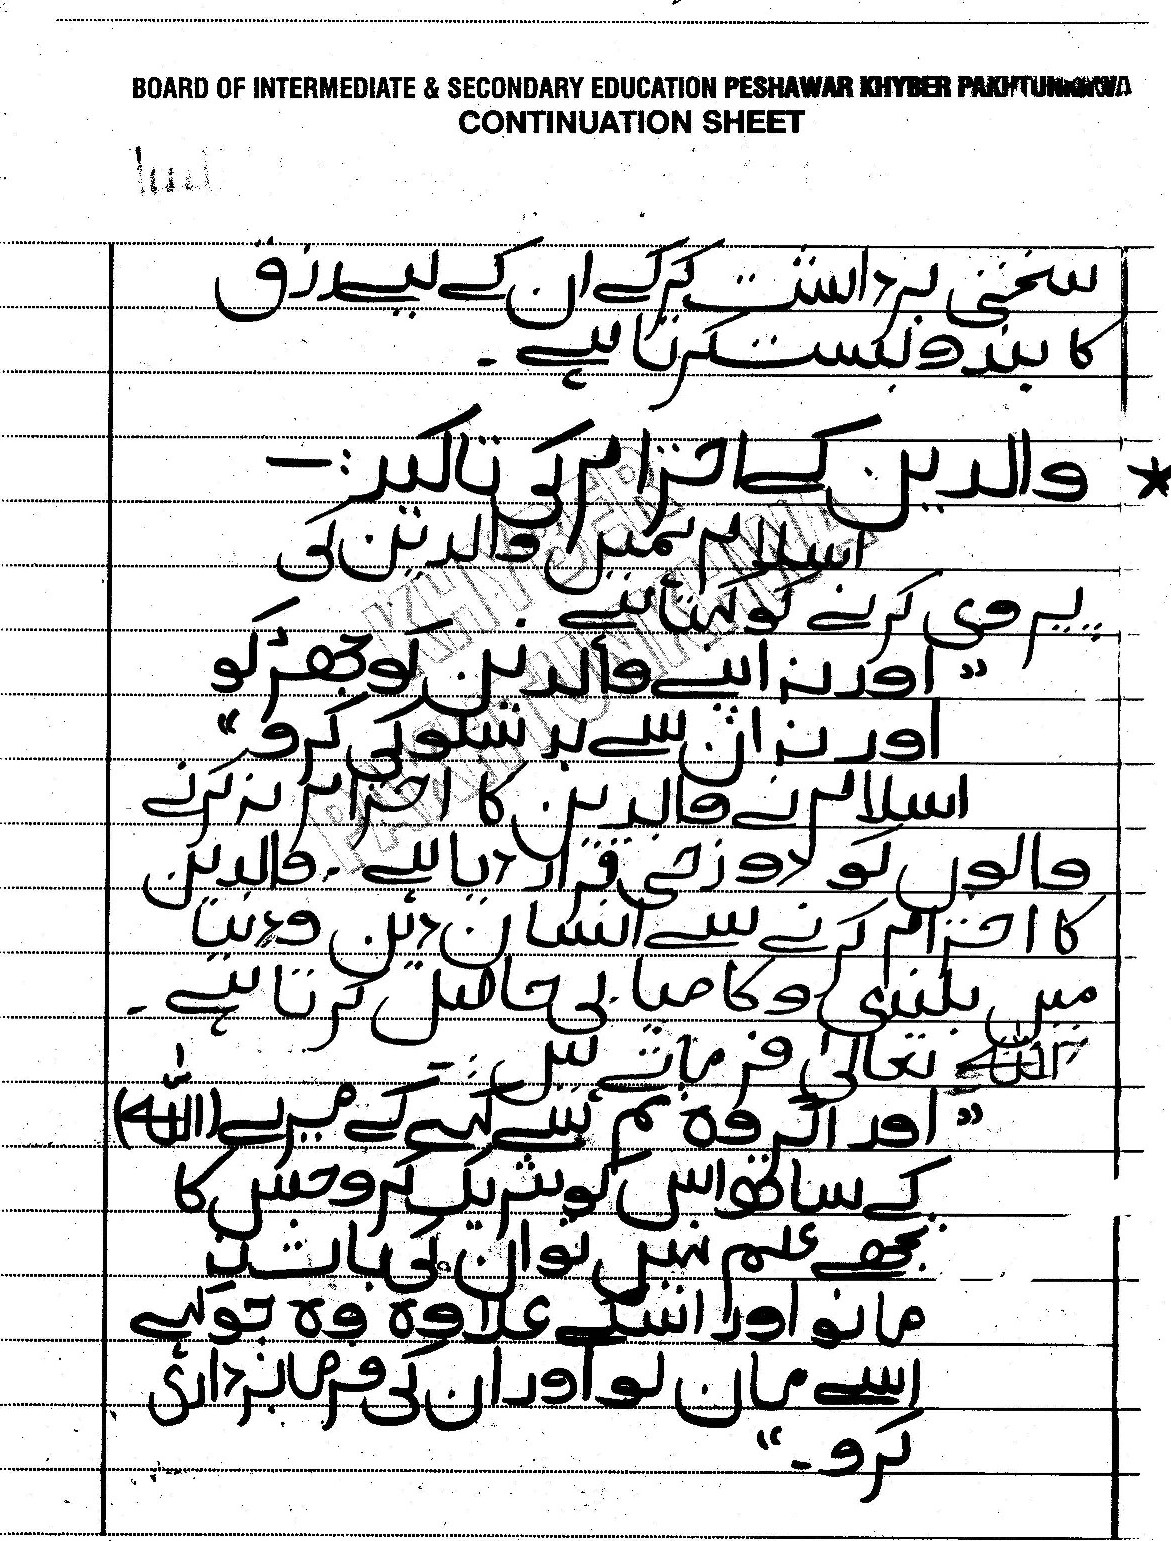 BOARD OF INTERMEDIATE & SECONDARY EDUCATION PESHAWAR KHYBER PAKHTUNKHWA
CONTINUATION SHEET
سختی برداشت کرکے ان کے لیے رزق
کا بندوبست کرتا ہے ۔
* والدین کے احترام کی تاکید :-
اسلام ہمیں والدین کی
پیروی کرنے کو کہتا ہے ۔
" اور نہ اپنے والدین کو جھڑکو
اور نہ ان سے بدسلوکی کرو "
اسلام نے والدین کا احترام نہ کرنے
والوں کو دوزخی قرار دیا ہے ۔ والدین
کا احترام کرنے سے انسان دین و دنیا
میں بلندی و کامیابی حاصل کرتا ہے ۔
اللہ تعالیٰ فرماتے ہیں :-
" اور اگر وہ تم سے کہے کے میرے (اللہ)
کے ساتھ اس کو شریک کرو جس کا
تجھے علم نہیں تو ان کی بات نہ
مانو اور اسکے علاوہ وہ جو کہے
اسے مان لو اور ان کی فرمانبرداری
کرو ۔ "
KHYBER
PAKHTUNKHWA